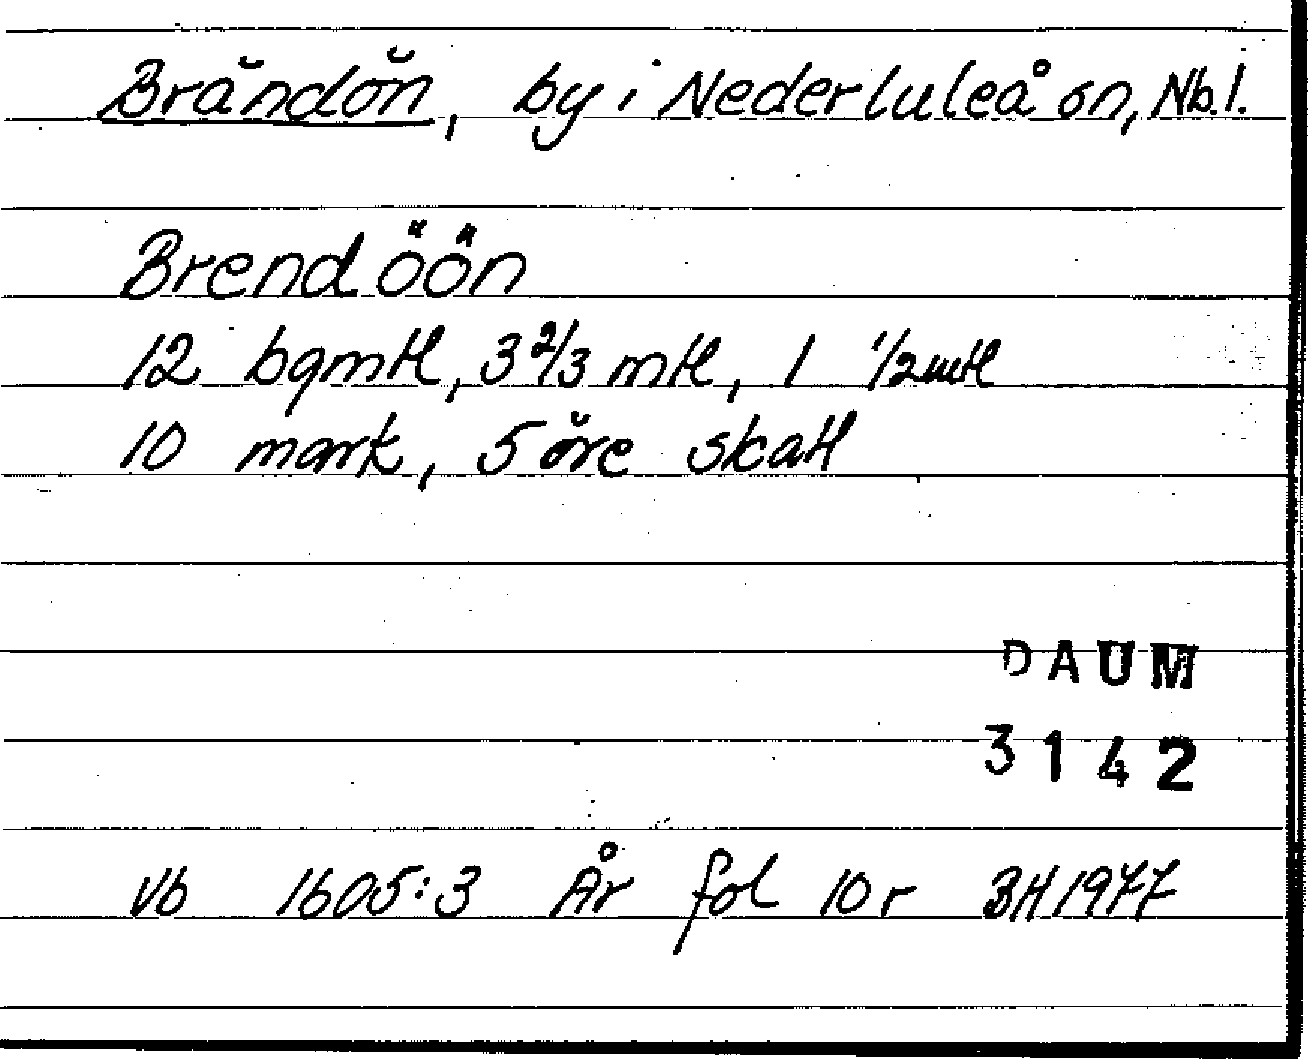 Brändön, by i Nederluleå sn, Nb.l.
Brendöön
12 bqmtl, 3 2/3 mtl, 1 1/2 mtl
10 mark, 5 öre skatt
DAUM
3142
Vb 1605:3 År fol 10 r BH 1977